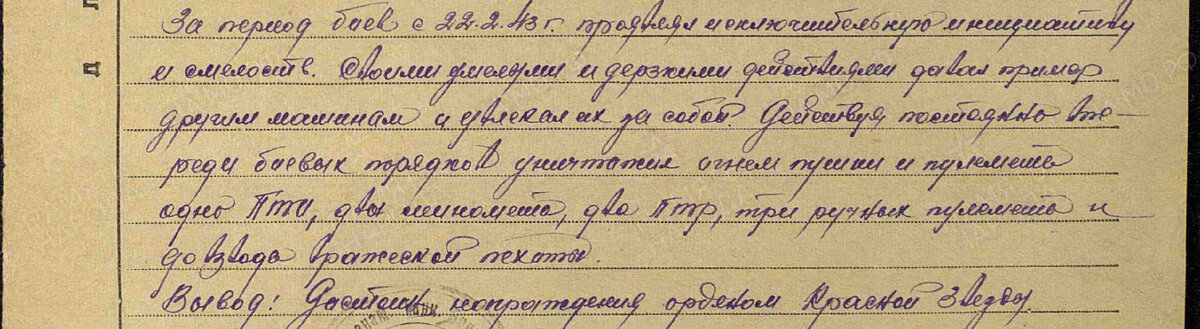 За период боев с 22.2.43 г. проявлял исключительную инициативу
и смелость. Своими умелыми и дерзкими действиями давал пример
другим машинам и увлекал их за собой. Действуя постоянно впе-
реди боевых порядков уничтожил огнем пушки и пулемета
одно ПТО, два миномета, два ПТР, три ручных пулемета и
до взвода вражеской пехоты.
Вывод: Достоин награждения орденом Красной Звезды.